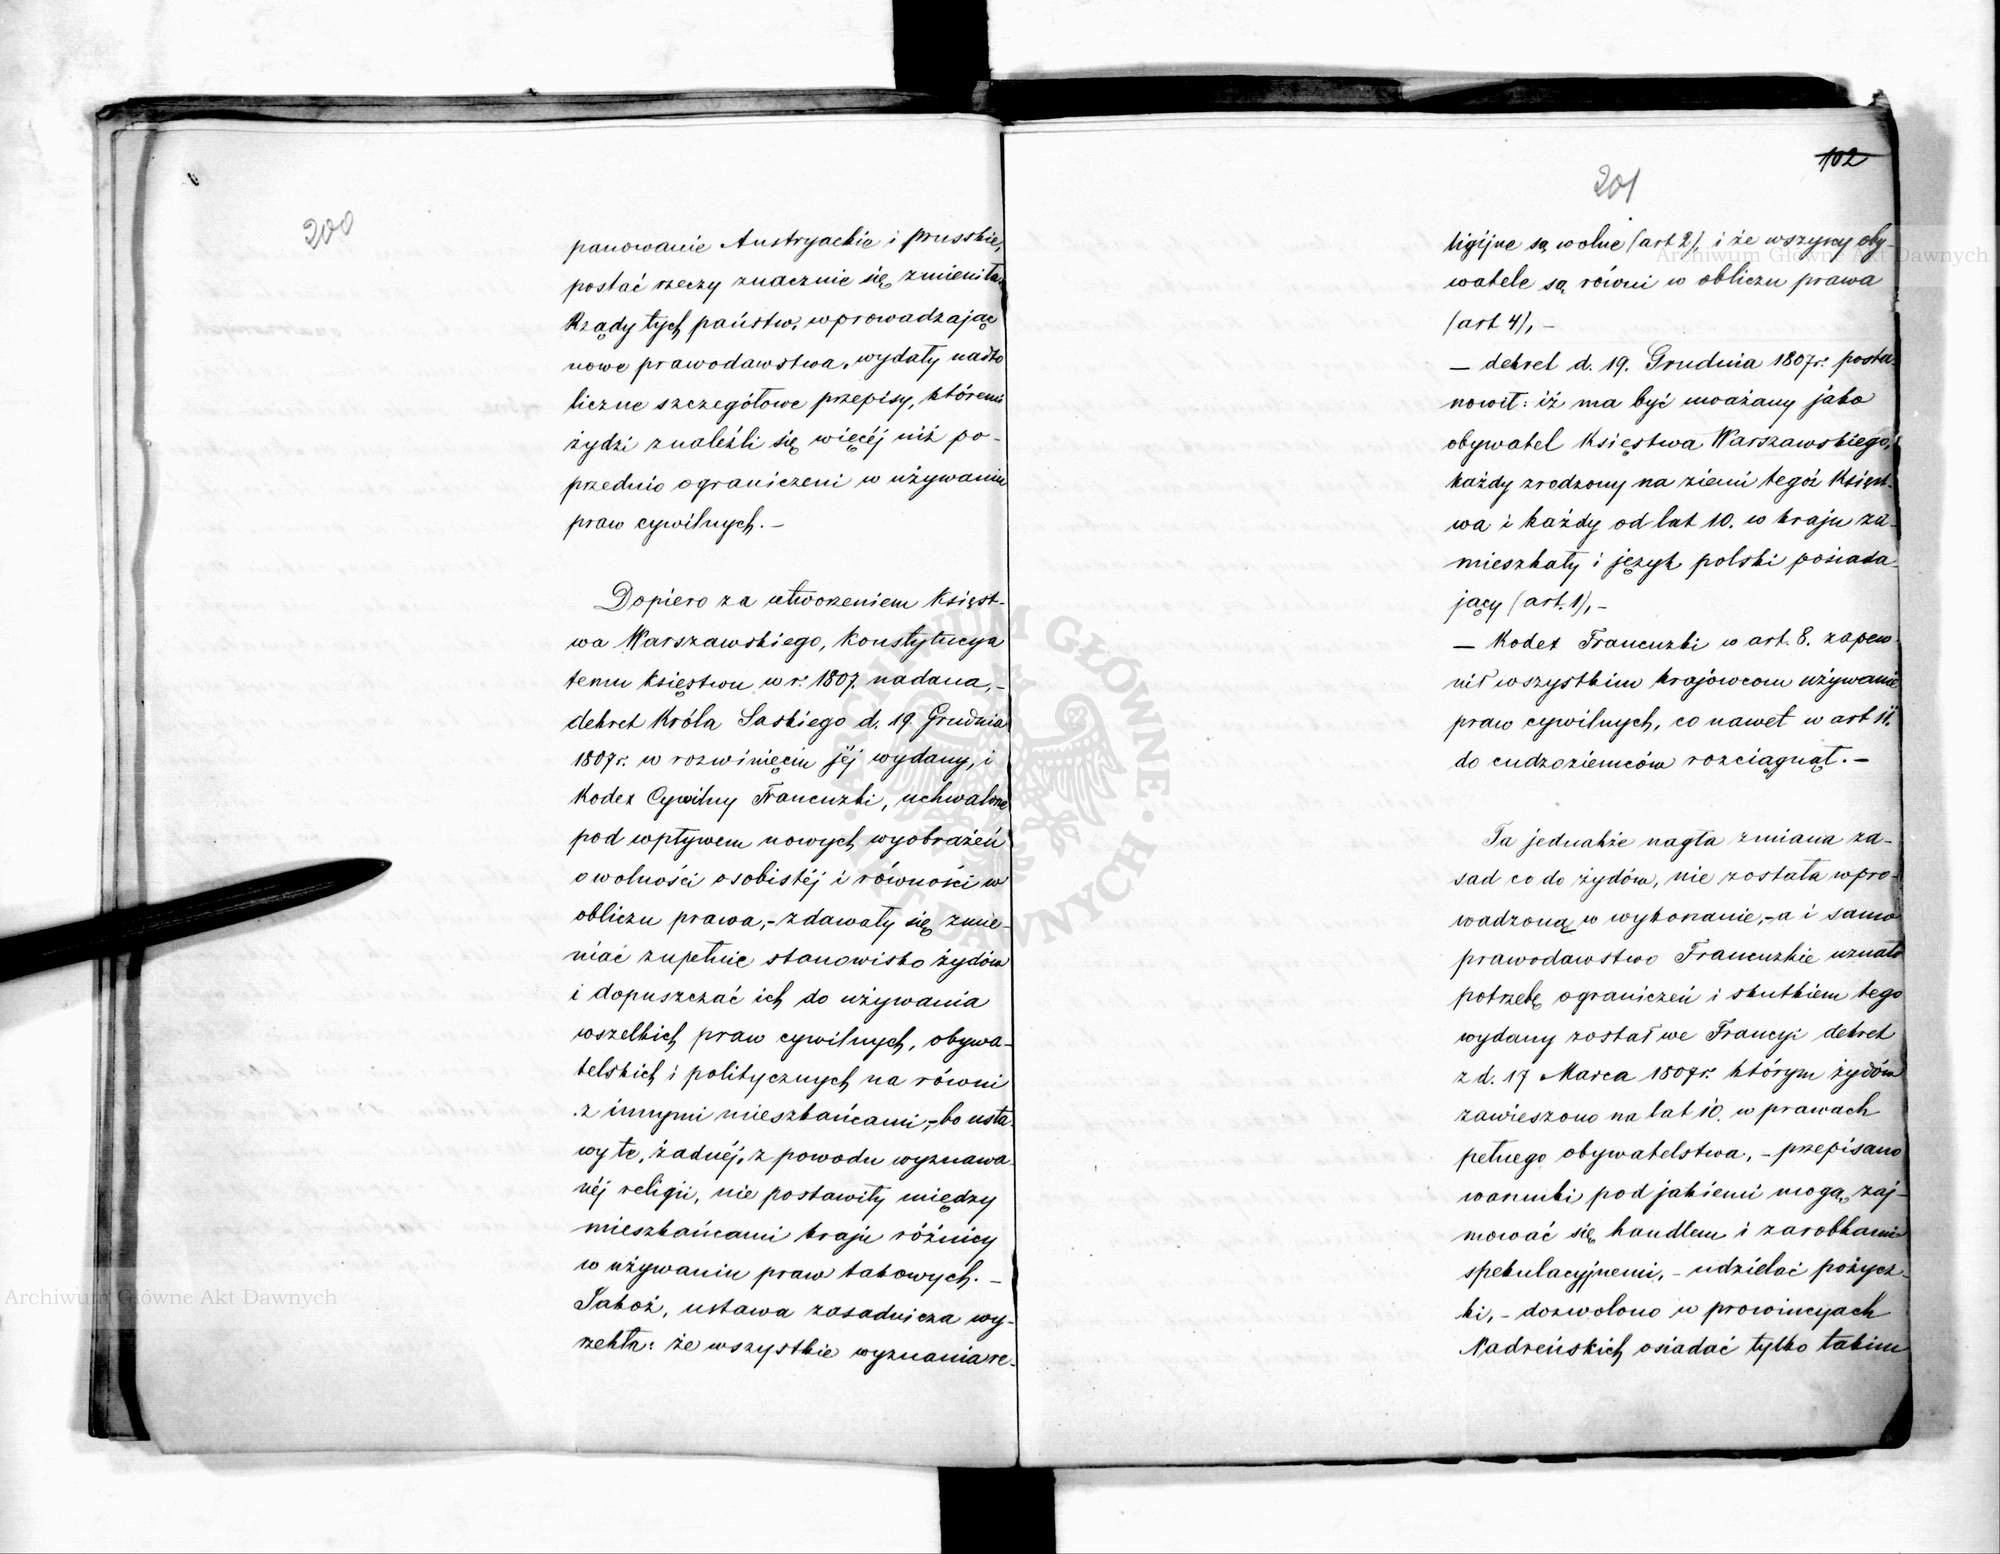 200
panowanie Austryackie i prusskie,
postać rzeczy znacznie się zmieniła.
Rządy tych państw, wprowadzając
nowe prawodawstwa, wydały nadto
liczne szczegółowe przepisy, któremi
żydzi znaleźli się więcéj niż po-
przednio ograniczeni w używaniu
praw cywilnych. –
Dopiero za utworzeniem Księst-
wa Warszawskiego, Konstytucya
temu księstwu w r: 1807. nadana, –
dekret Króla Saskiego d. 19 Grudnia
1807 r. w rozwinięciu jéj wydany, i
Kodex Cywilny Francuzki, uchwalone
pod wpływem nowych wyobrażeń
o wolności osobistéj i równości w
obliczu prawa, – zdawały się zmie-
niać zupełnie stanowisko żydów
i dopuszczać ich do używania
wszelkich praw cywilnych, obywa-
telskich i politycznych na równi
z innymi mieszkańcami, – bo usta-
wy te, żadnéj, z powodu wyznawa-
néj religii, nie postawiły między
mieszkańcami kraju różnicy
w używaniu praw takowych. –
Jakoż, ustawa zasadnicza wy-
rzekła: że wszystkie wyznania re-
102
201
ligijne są wolne (art 2), i że wszyscy oby-
watele są równi w obliczu prawa
(art 4), –
– dekret d. 19. Grudnia 1807 r: posta-
nowił: iż ma być uważany jako
obywatel Księstwa Warszawskiego,
każdy zrodzony na ziemi tegoż Księst-
wa i każdy od lat 10. w kraju za-
mieszkały i język polski posiada-
jący (art. 1), –
– Kodex Francuzki w art. 8. zapew-
nił wszystkim krajowcom używanie
praw cywilnych, co nawet w art 11.
do cudzoziemców rozciągnął. –
Ta jednakże nagła zmiana za-
sad co do żydów, nie została wpro-
wadzoną w wykonanie, – a i samo
prawodawstwo Francuzkie uznało
potrzebę ograniczeń i skutkiem tego
wydany został we Francyi dekret
z d. 17 Marca 1807 r: którym żydów
zawieszono na lat 10. w prawach
pełnego obywatelstwa, – przepisano
warunki pod jakiemi mogą zaj-
mować się handlem i zarobkami
spekulacyjnemi, – udzielać pożycz-
ki, – dozwolono w prowincyach
Nadreńskich osiadać tylko takim
Archiwum Główne Akt Dawnych
Archiwum Główne Akt Dawnych
ARCHIWUM GŁÓWNE AKT DAWNYCH